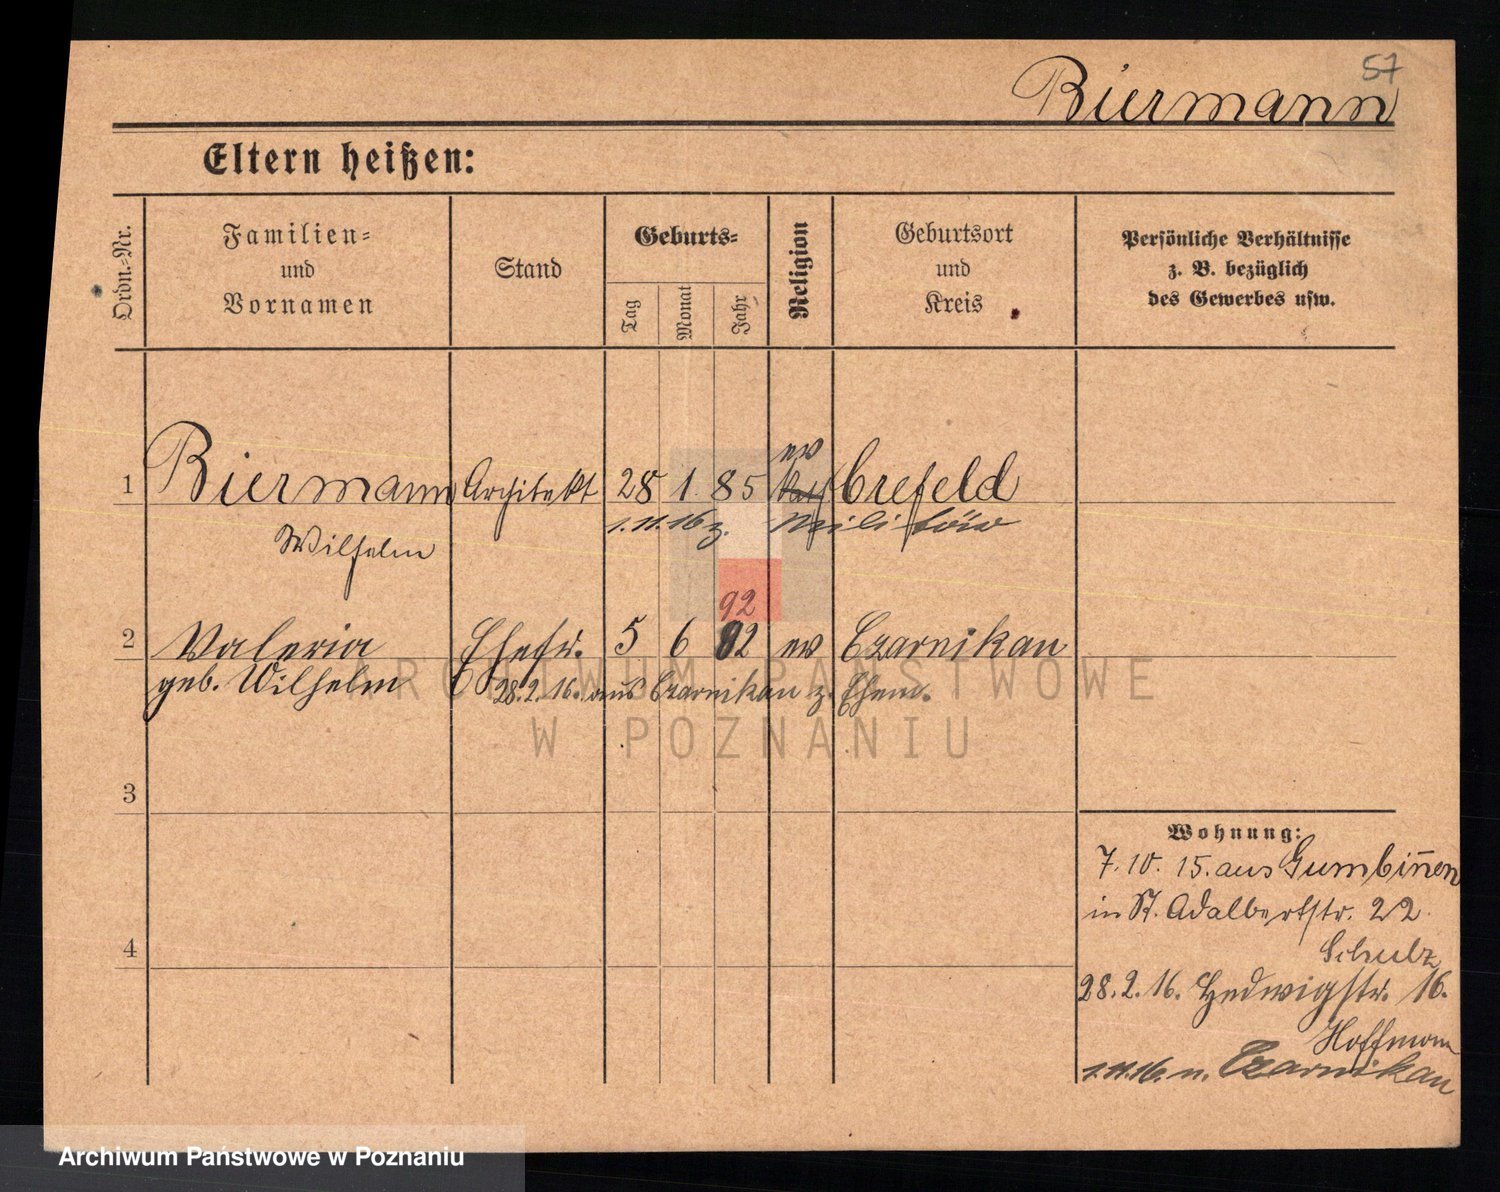 57
Biermann
Eltern heißen:
Ordn.-Nr.
Familien- und Vornamen
Stand
Geburts-
Tag
Monat
Jahr
Religion
Geburtsort und Kreis
Persönliche Verhältnisse z. B. bezüglich des Gewerbes usw.
ev
1 Biermann Architekt 28 1. 85 kath Crefeld
1.11.16 z. Militär
Wilhelm
92
2 Valeria Ehefr. 5 6 82 ev Czarnikau
geb. Wilhelm 28.2.16. aus Czarnikau z. Ehem.
ARCHIWUM PAŃSTWOWE
W POZNANIU
3
4
Wohnung:
7.10.15. aus Gumbiñen
in St. Adalbertstr. 22.
Schulz
28.2.16. Hedwigstr. 16.
Hoffmann
1.11.16. n. Czarnikau
Archiwum Państwowe w Poznaniu